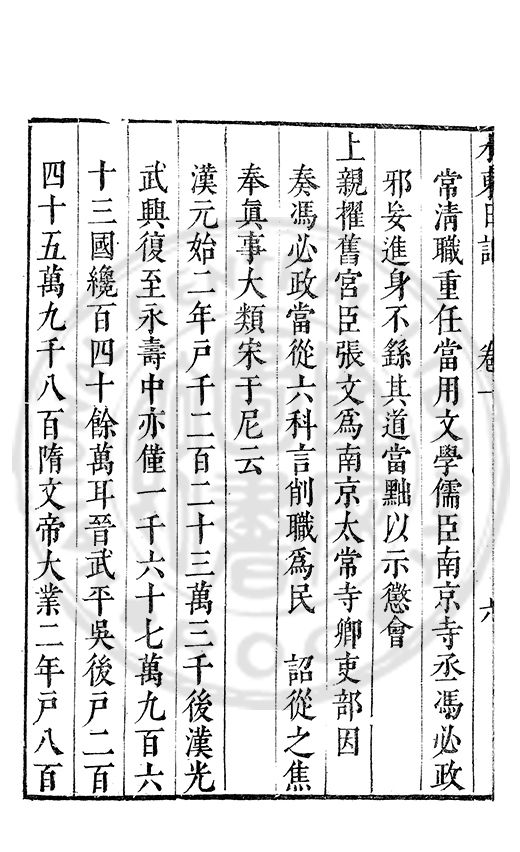 水東日記 卷一 六
常淸職重任當用文學儒臣南京寺丞馮必政
邪妄進身不繇其道當黜以示懲會
上親擢舊宮臣張文爲南京太常寺卿吏部因
奏馮必政當從六科言削職爲民 詔從之焦
奉眞事大類宋于尼云
漢元始二年戸千二百二十三萬三千後漢光
武興復至永壽中亦僅一千六十七萬九百六
十三國纔百四十餘萬耳晉武平吳後戸二百
四十五萬九千八百隋文帝大業二年戸八百